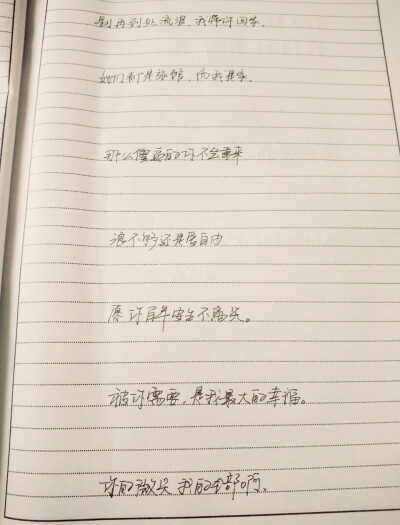 别再到处流浪,我带你回家.
她们都是旅馆,而我是家.
那么傻逼的你不会再来
浪不够还是要自由
愿你百年安生不离笑。
被你需要,是我最大的幸福。
你的微笑 我的全部啊。